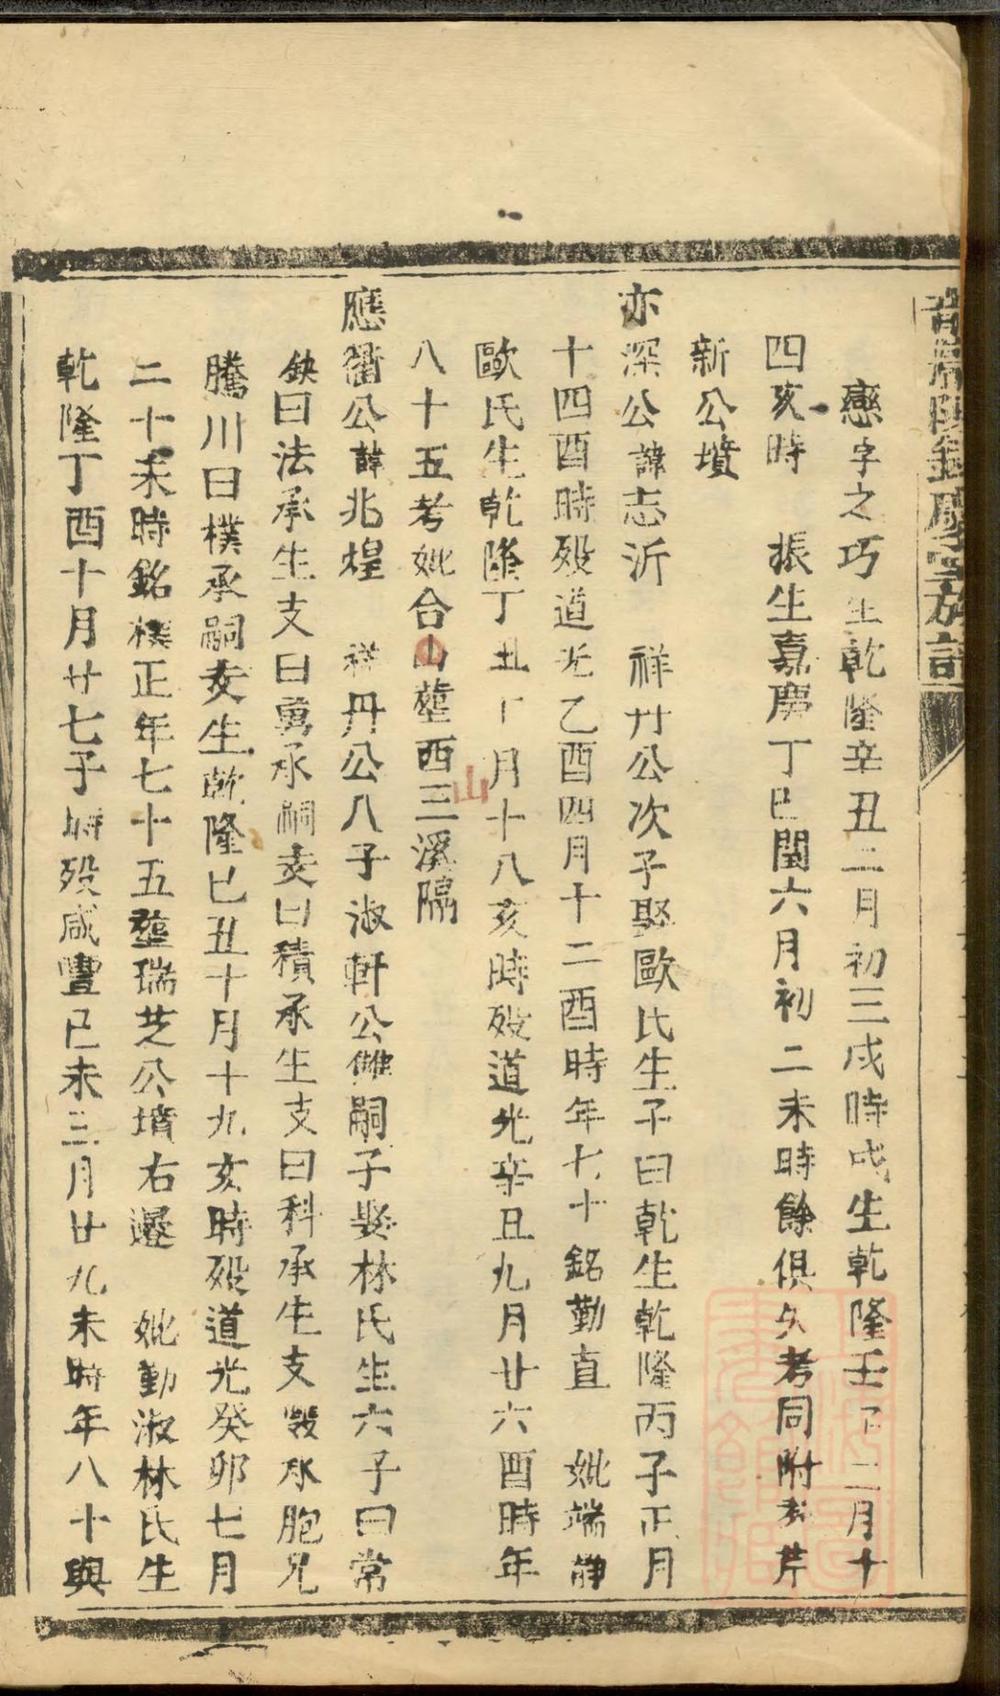 戀字之巧生乾隆辛丑二月初三戌時戌生乾隆壬二月十
四亥時　振生嘉慶丁巳閏六月初二未時餘俱久考同附芹
新公墳
亦深公諱志沂　祥丹公次子娶歐氏生子曰乾生乾隆丙子正月
十四酉時歿道光乙酉四月十二酉時年七十銘勤直　妣端靜
歐氏生乾隆丁丑月十八亥時歿道光辛丑九月廿六酉時年
八十五考妣合山塟西三溪隔
山
應衢公諱兆煌　祥丹公八子淑軒公雙嗣子娶林氏生六子曰常
鉄曰法承生支曰勇承嗣支曰積承生支曰科承生支承胞兄
騰川曰樸承嗣支生乾隆己丑十月十九亥時歿道光癸卯七月
二十未時銘樸正年七十五塟瑞芝公墳右邊　妣勤淑林氏生
乾隆丁酉十月廿七子時歿咸豐己未三月廿九未時年八十與